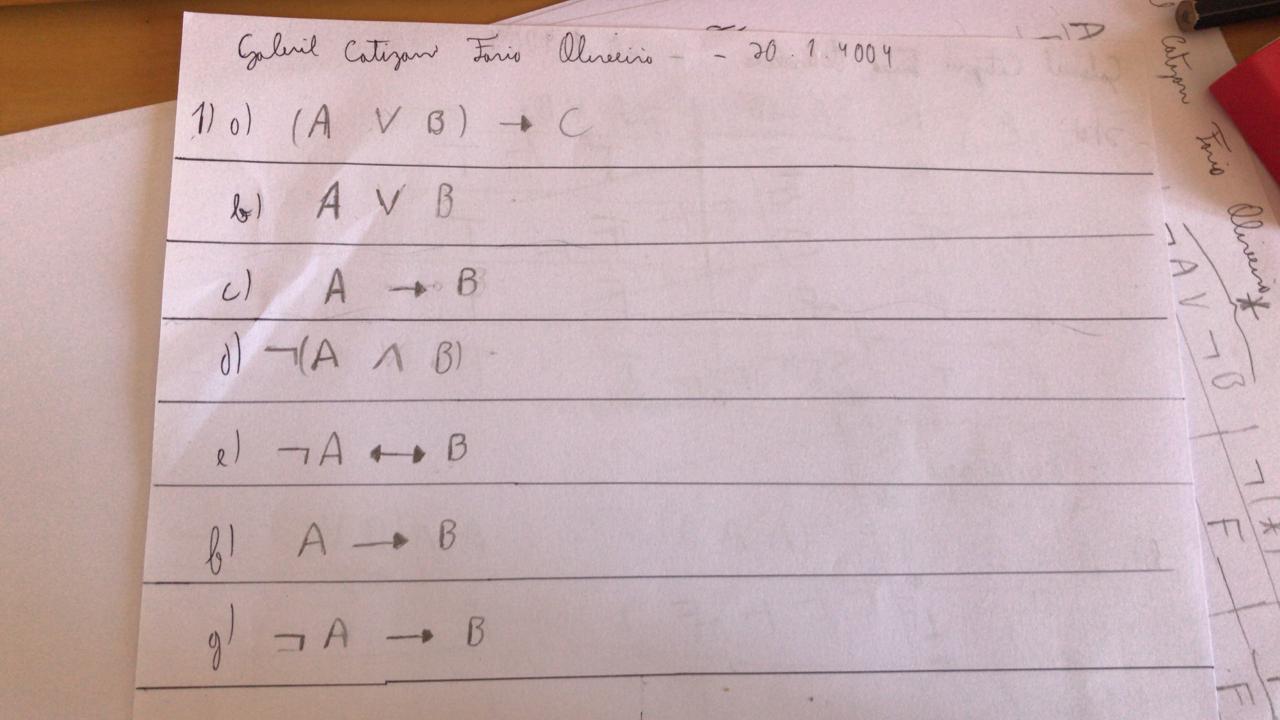 Gabriel Catizani Faria Oliveira - - 20.1.4004
1) a) (A ∨ B) → C
b) A ∨ B
c) A → B
d) ¬(A ∧ B)
e) ¬A ↔ B
f) A → B
g) ¬A → B
A
Catizani Faria Oliveira
*
¬A ∨ ¬B
¬(*)
F
F